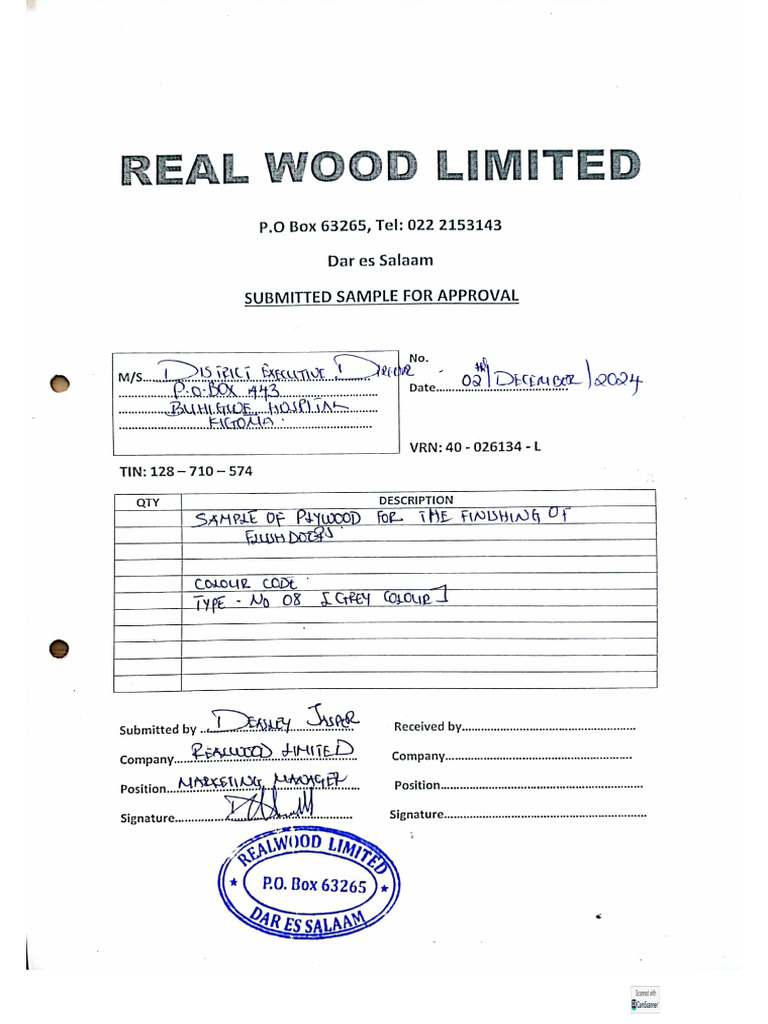 REAL WOOD LIMITED
P.O Box 63265, Tel: 022 2153143
Dar es Salaam
SUBMITTED SAMPLE FOR APPROVAL
M/S DISTRICT EXECUTIVE DIRECTOR
P.O.BOX 443
BUHIGWE HOSPITAL
KIGOMA
No.
Date 02nd/DECEMBER/2024
VRN: 40 - 026134 - L
TIN: 128 – 710 – 574
QTY DESCRIPTION
SAMPLE OF PLYWOOD FOR THE FINISHING OF
FLUSH DOORS
COLOUR CODE
TYPE - No 08 [GREY COLOUR]
Submitted by DEASLEY JASPER
Company REALWOOD LIMITED
Position MARKETING MANAGER
Signature
Received by
Company
Position
Signature
REALWOOD LIMITED
P.O. Box 63265
DAR ES SALAAM
Scanned with
CS CamScanner